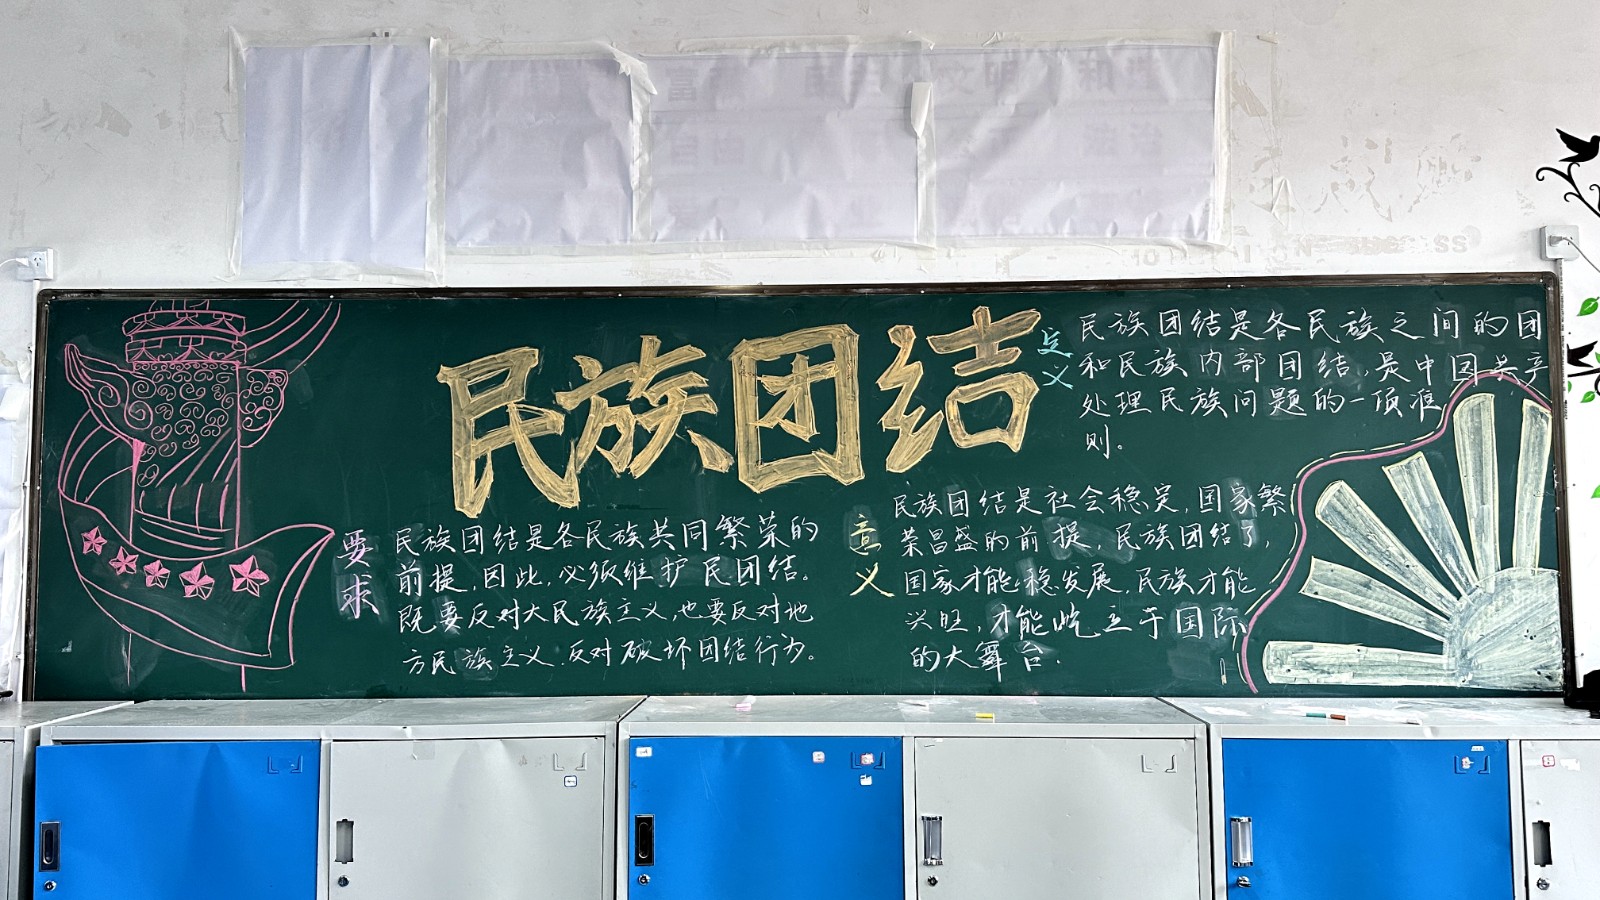 民族团结
定义
民族团结是各民族之间的团
和民族内部团结,是中国共产
处理民族问题的一项准
则。
要求
民族团结是各民族共同繁荣的
前提,因此,必须维护民团结。
既要反对大民族主义,也要反对地
方民族主义.反对破坏团结行为。
意义
民族团结是社会稳定,国家繁
荣昌盛的前提,民族团结了,
国家才能稳发展,民族才能
兴旺,才能屹立于国际
的大舞台.